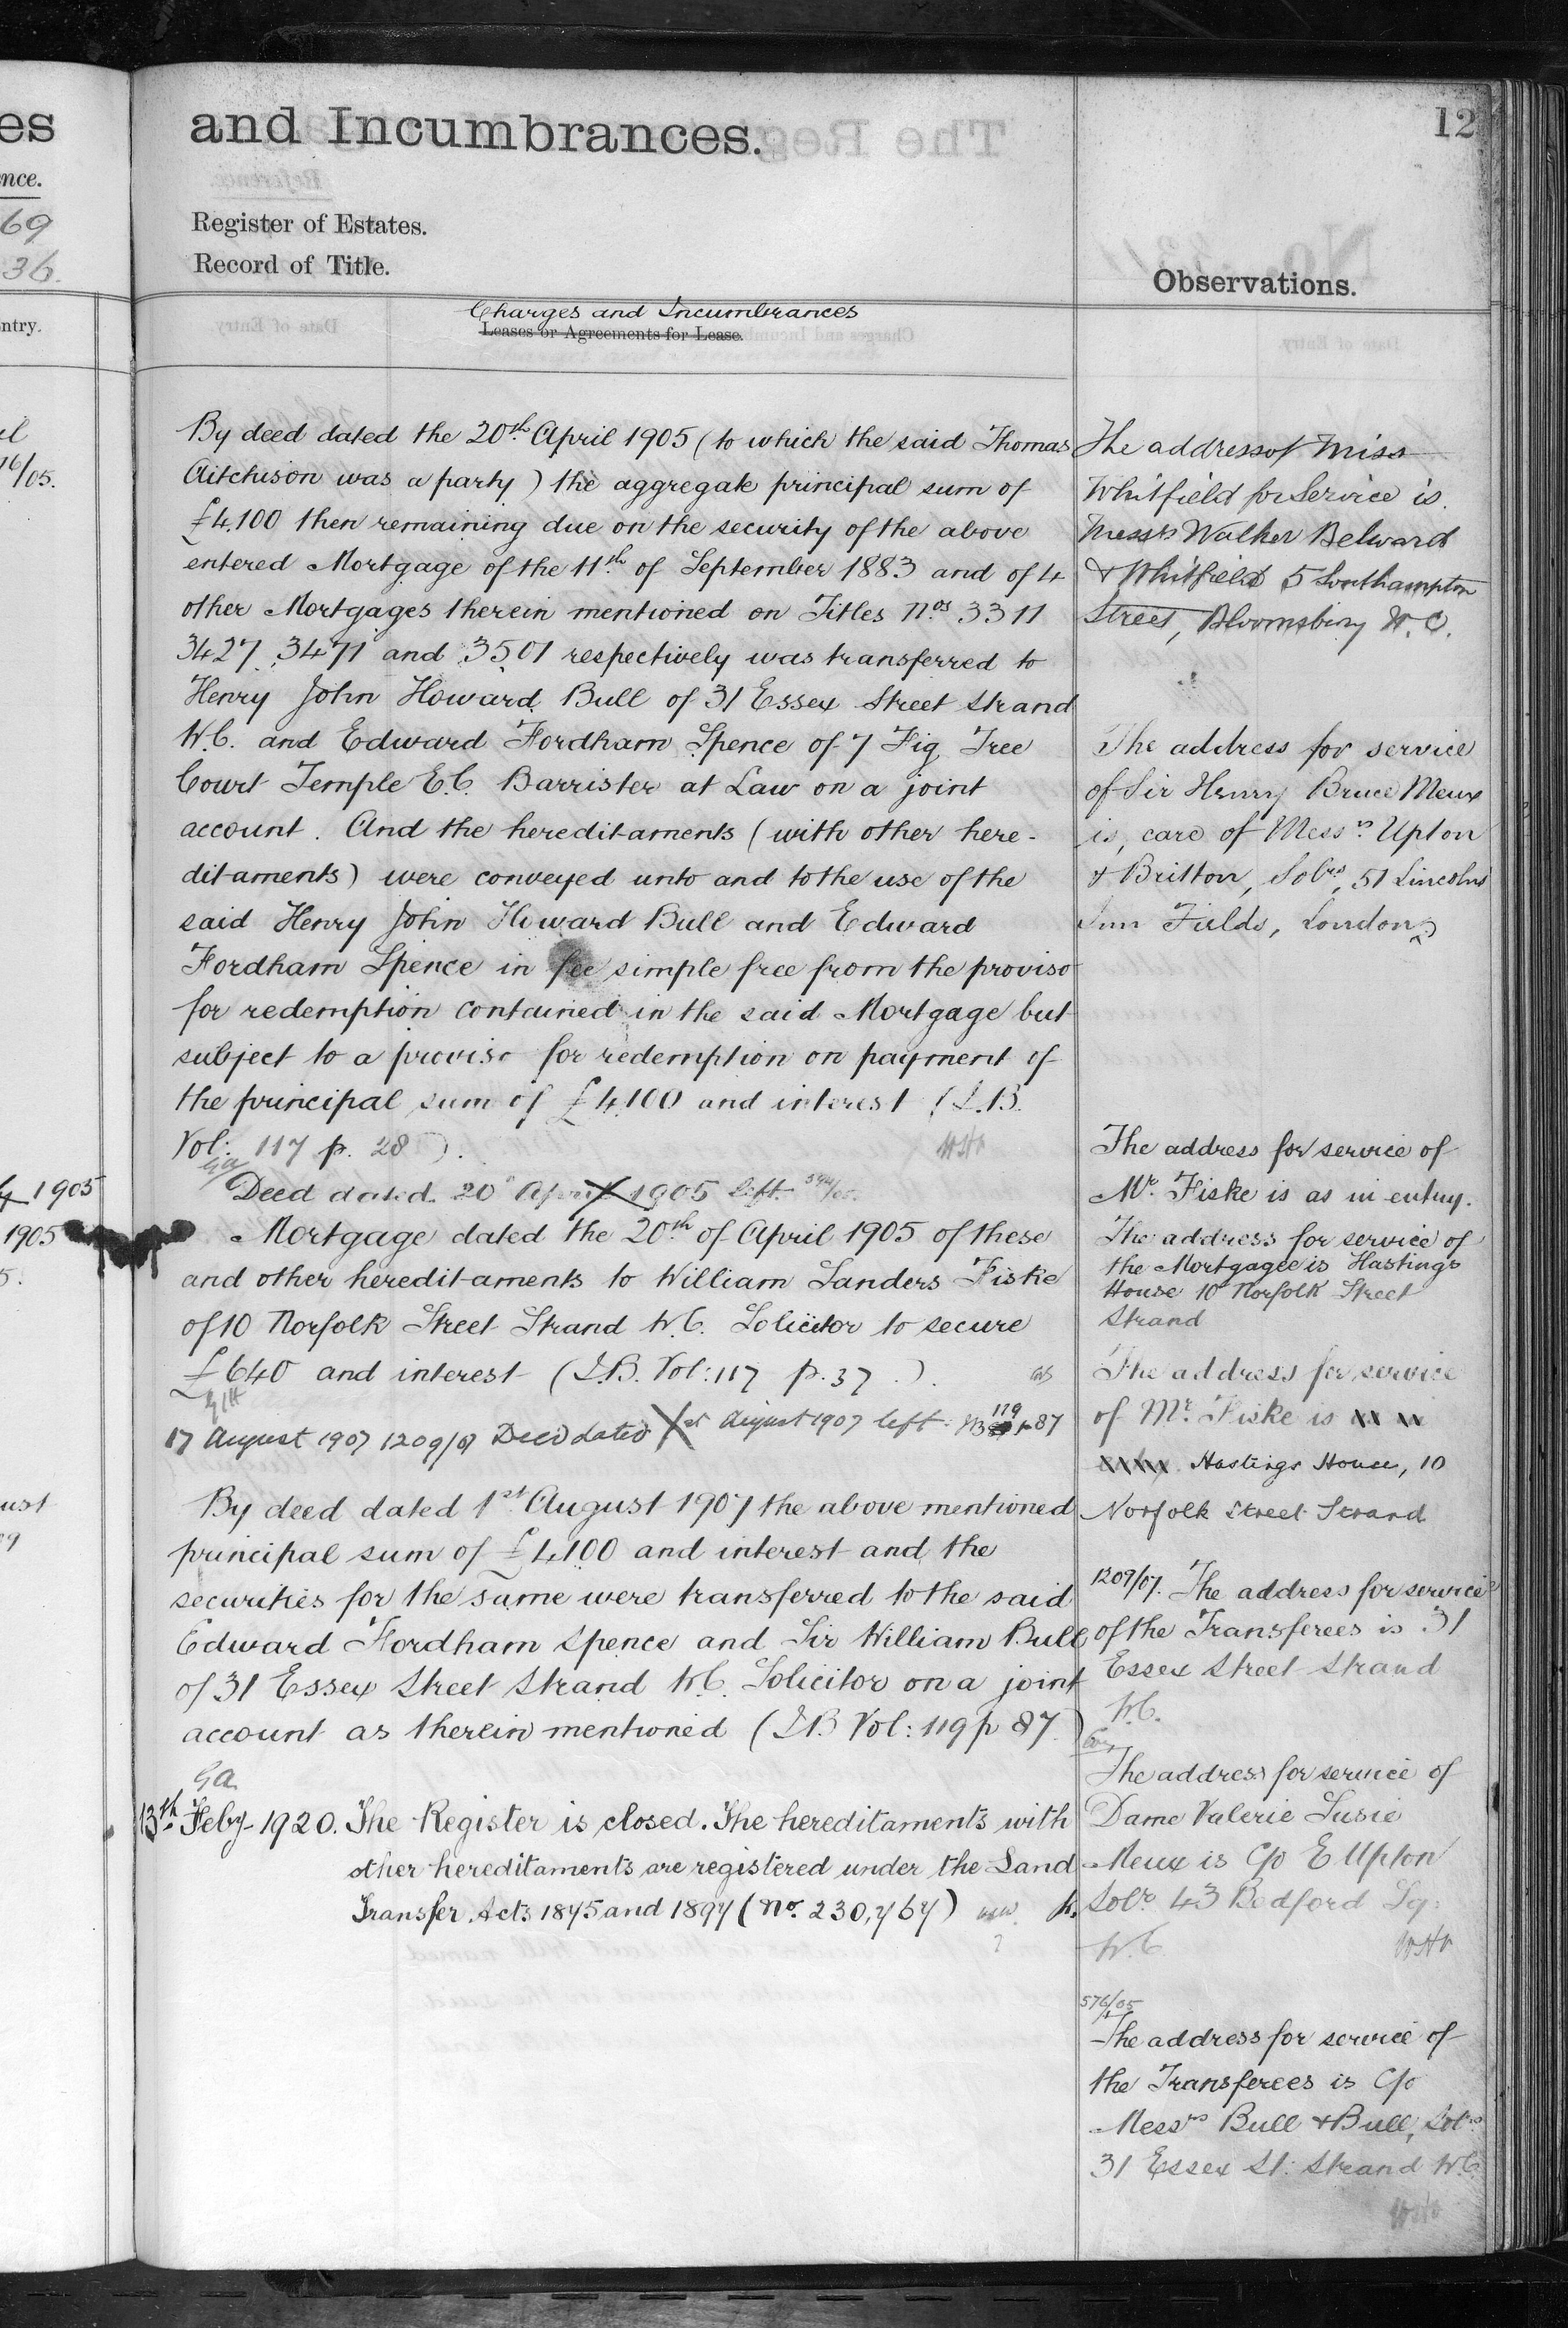 es
nce.
69
36.
ntry.
16/05.
1905
1905
5.
ust
and Incumbrances.
12
Register of Estates.
Record of Title.
Observations.
Charges and Incumbrances
Leases or Agreements for Lease.
By deed dated the 20th April 1905 (to which the said Thomas
Aitchison was a party) the aggregate principal sum of
£4,100 then remaining due on the security of the above
entered Mortgage of the 11th of September 1883 and of 4
other Mortgages therein mentioned on Titles Nos 3311
3427, 3471 and 3501 respectively was transferred to
Henry John Howard Bull of 31 Essex Street Strand
W.C. and Edward Fordham Spence of 7 Fig Tree
Court Temple E.C. Barrister at Law on a joint
account. And the hereditaments (with other here-
ditaments) were conveyed unto and to the use of the
said Henry John Howard Bull and Edward
Fordham Spence in fee simple free from the proviso
for redemption contained in the said Mortgage but
subject to a proviso for redemption on payment of
the principal sum of £4,100 and interest (I.B.
Vol: 117 p. 28).
Deed dated 20 April 1905 left
Mortgage dated the 20th of April 1905 of these
and other hereditaments to William Sanders Fiske
of 10 Norfolk Street Strand W.C. Solicitor to secure
£640 and interest (I.B. Vol: 117 p. 37).
17 August 1907 1209/07 Deed dated 1st August 1907 left 119 p 87
By deed dated 1st August 1907 the above mentioned
principal sum of £4,100 and interest and the
securities for the same were transferred to the said
Edward Fordham Spence and Sir William Bull
of 31 Essex Street Strand W.C. Solicitor on a joint
account as therein mentioned (I.B Vol: 119 p 87)
GA
13th Feby 1920. The Register is closed. The hereditaments with
other hereditaments are registered under the Land
Transfer Acts 1875 and 1897 (No. 230,767)
The address of Miss
Whitfield for Service is
Messrs Walker Belward
& Whitfield 5 Southampton
Street, Bloomsbury W.C.
The address for service
of Sir Henry Bruce Meux
is, care of Messrs Upton
& Britton, Solrs, 51 Lincolns
Inn Fields, London
The address for service of
Mr. Fiske is as in entry.
The address for service of
the Mortgagee is Hastings
House 10 Norfolk Street
Strand
The address for service
of Mr. Fiske is
Hastings House, 10
Norfolk Street Strand
1209/07. The address for service
of the Transferees is 31
Essex Street Strand
W.C.
The address for service of
Dame Valerie Susie
Meux is C/o E Upton
Solr. 43 Bedford Sq:
W.C.
576/05
The address for service of
the Transferees is C/o
Messrs Bull & Bull, Solrs
31 Essex St: Strand W.C.